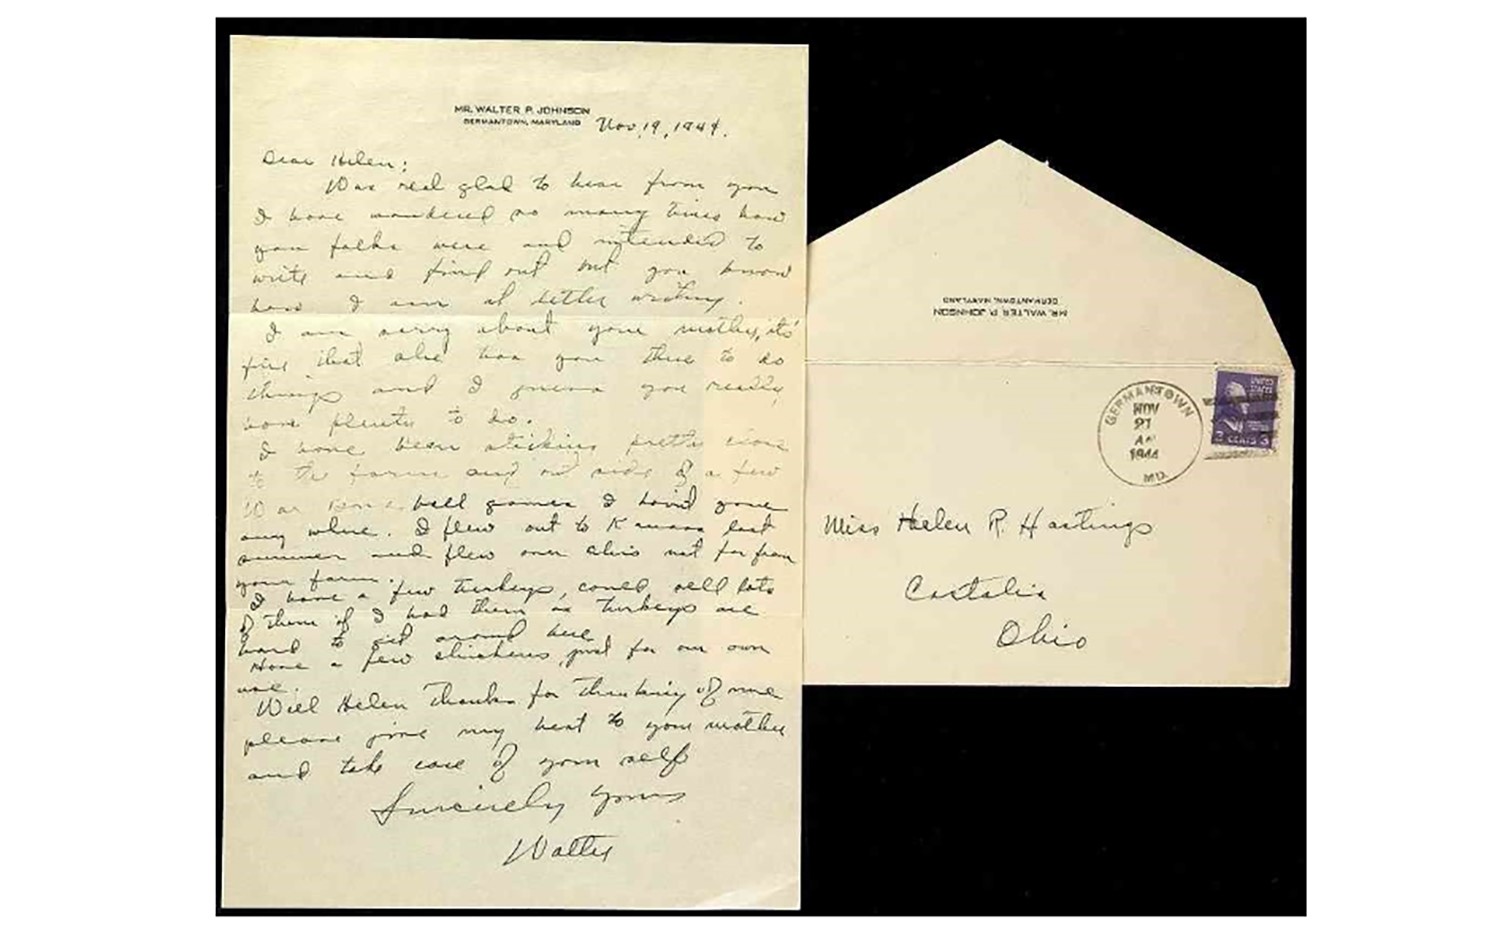 MR. WALTER P. JOHNSON
GERMANTOWN, MARYLAND
Nov. 19, 1944.
Dear Helen;
Was real glad to hear from you
I have wondered so many times how
you folks were and intended to
write and find out but you know
how I am at letter writing.
I am sorry about your mother, its'
fine that she has you there to do
things and I guess you really
have plenty to do.
I have been sticking pretty close
to the farm and out side of a few
War Bond ball games I havid gone
any where. I flew out to Kansas last
summer and flew over Ohio not far from
your farm.
I have a few turkeys, could sell lots
of them if I had them as turkeys are
hard to get around here
Have a few chickens, just for our own
use.
Well Helen thanks for thinking of me
please give my best to your mother
and take care of your self
Sincerely yours
Walter
MR. WALTER P. JOHNSON
GERMANTOWN, MARYLAND
GERMANTOWN
NOV
21
AM
1944
MD.
UNITED
STATES
3 CENTS 3
Miss Helen R. Hastings
Castalia
Ohio